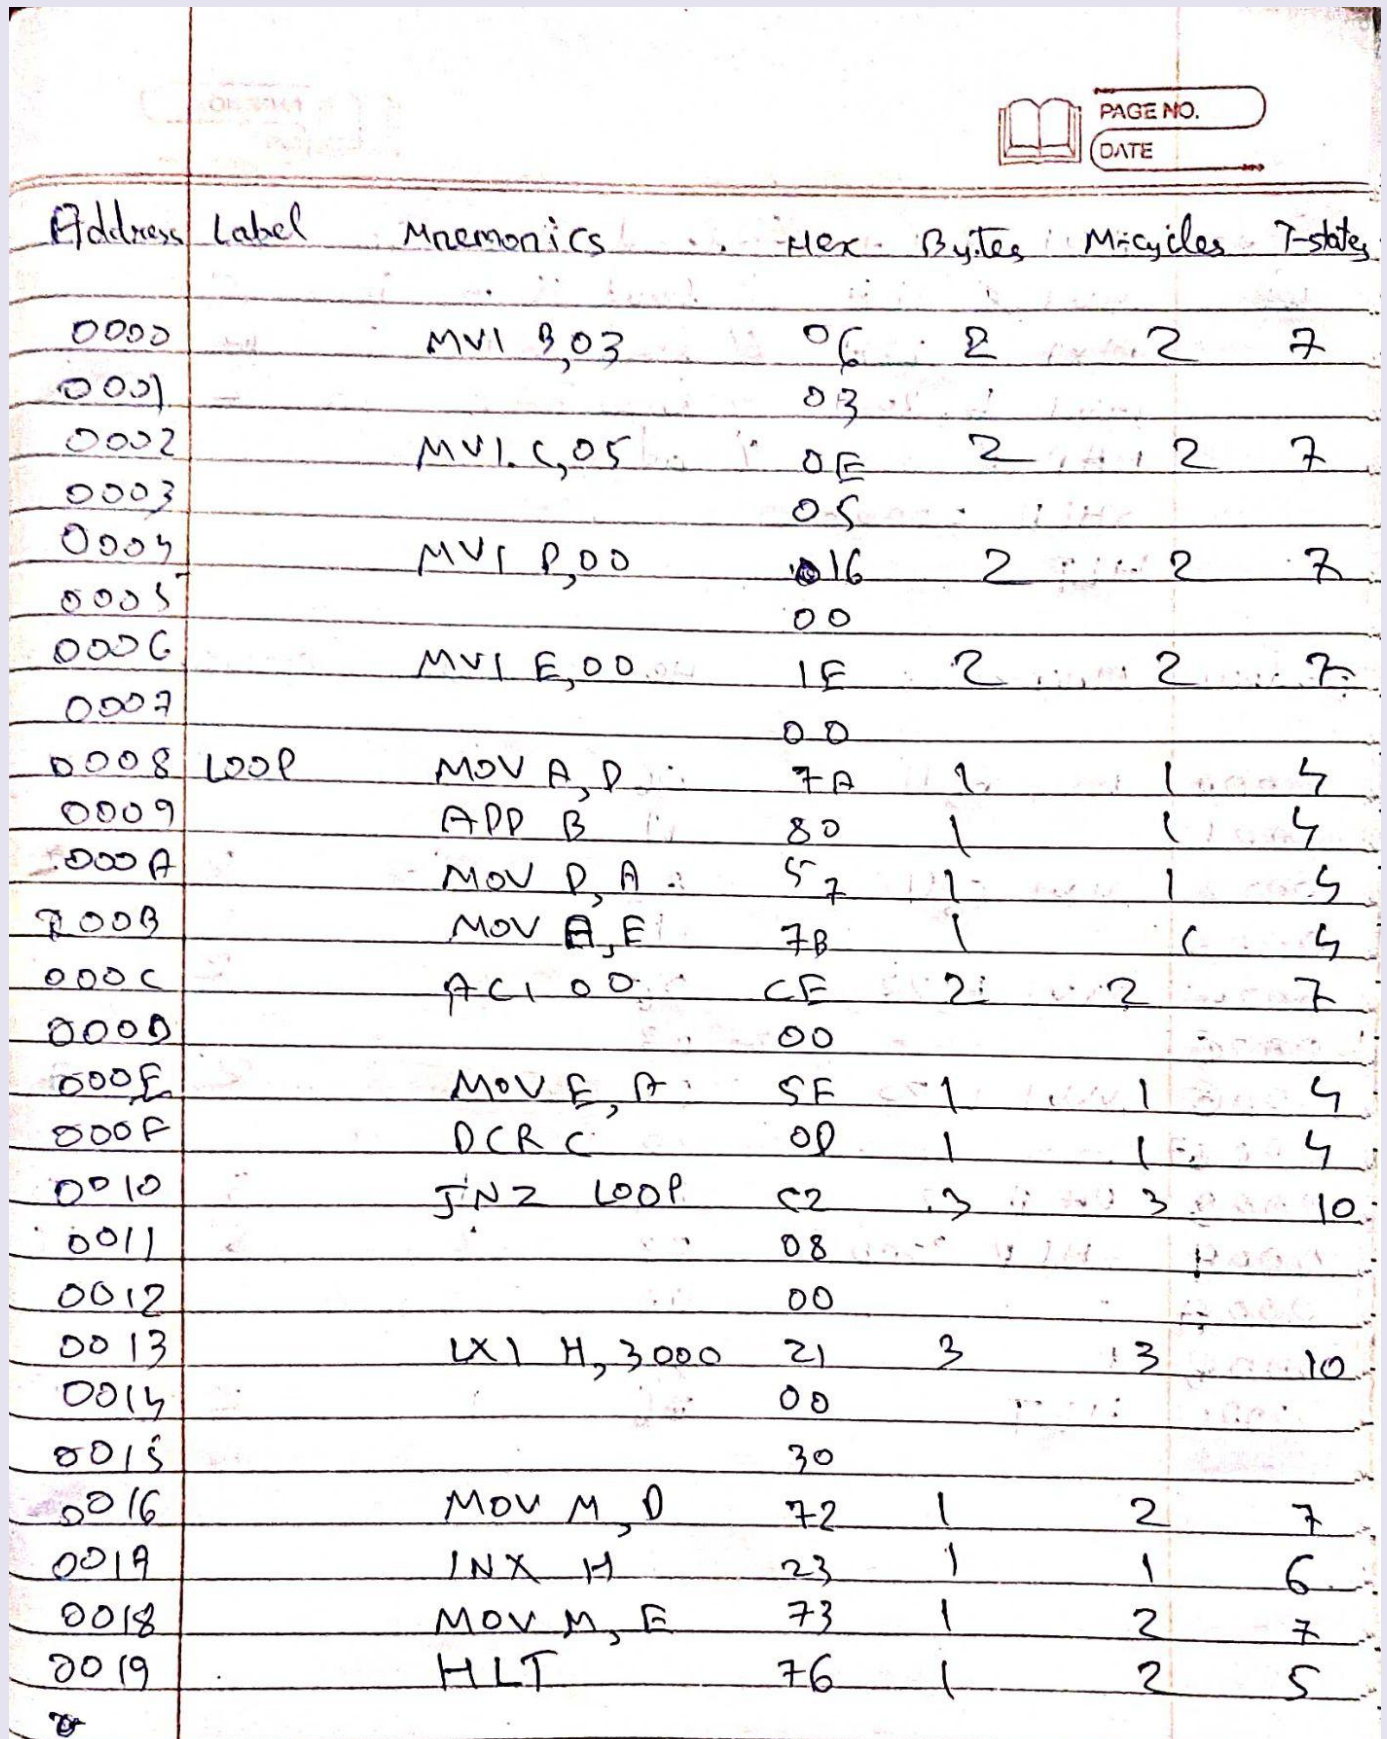 PAGE NO.
DATE
Address Label Mnemonics Hex Bytes M-cycles T-states
0000 MVI B,03 06 2 2 7
0001 03
0002 MVI C,05 0E 2 2 7
0003 05
0004 MVI D,00 16 2 2 7
0005 00
0006 MVI E,00 1E 2 2 7
0007 00
0008 LOOP MOV A,D 7A 1 1 4
0009 ADD B 80 1 1 4
000A MOV D,A 57 1 1 4
000B MOV A,E 7B 1 1 4
000C ACI 00 CE 2 2 7
000D 00
000E MOV E,A 5F 1 1 4
000F DCR C 0D 1 1 4
0010 JNZ LOOP C2 3 3 10
0011 08
0012 00
0013 LXI H,3000 21 3 3 10
0014 00
0015 30
0016 MOV M,D 72 1 2 7
0019 INX H 23 1 1 6
0018 MOV M,E 73 1 2 7
0019 HLT 76 1 2 5